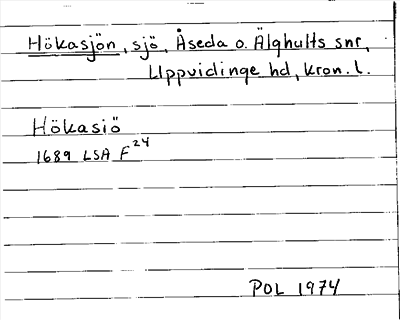 Hökasjön, sjö, Åseda o. Älghults snr,
Uppvidinge hd, Kron. l.
Hökasiö
1689 LSA F24
POL 1974